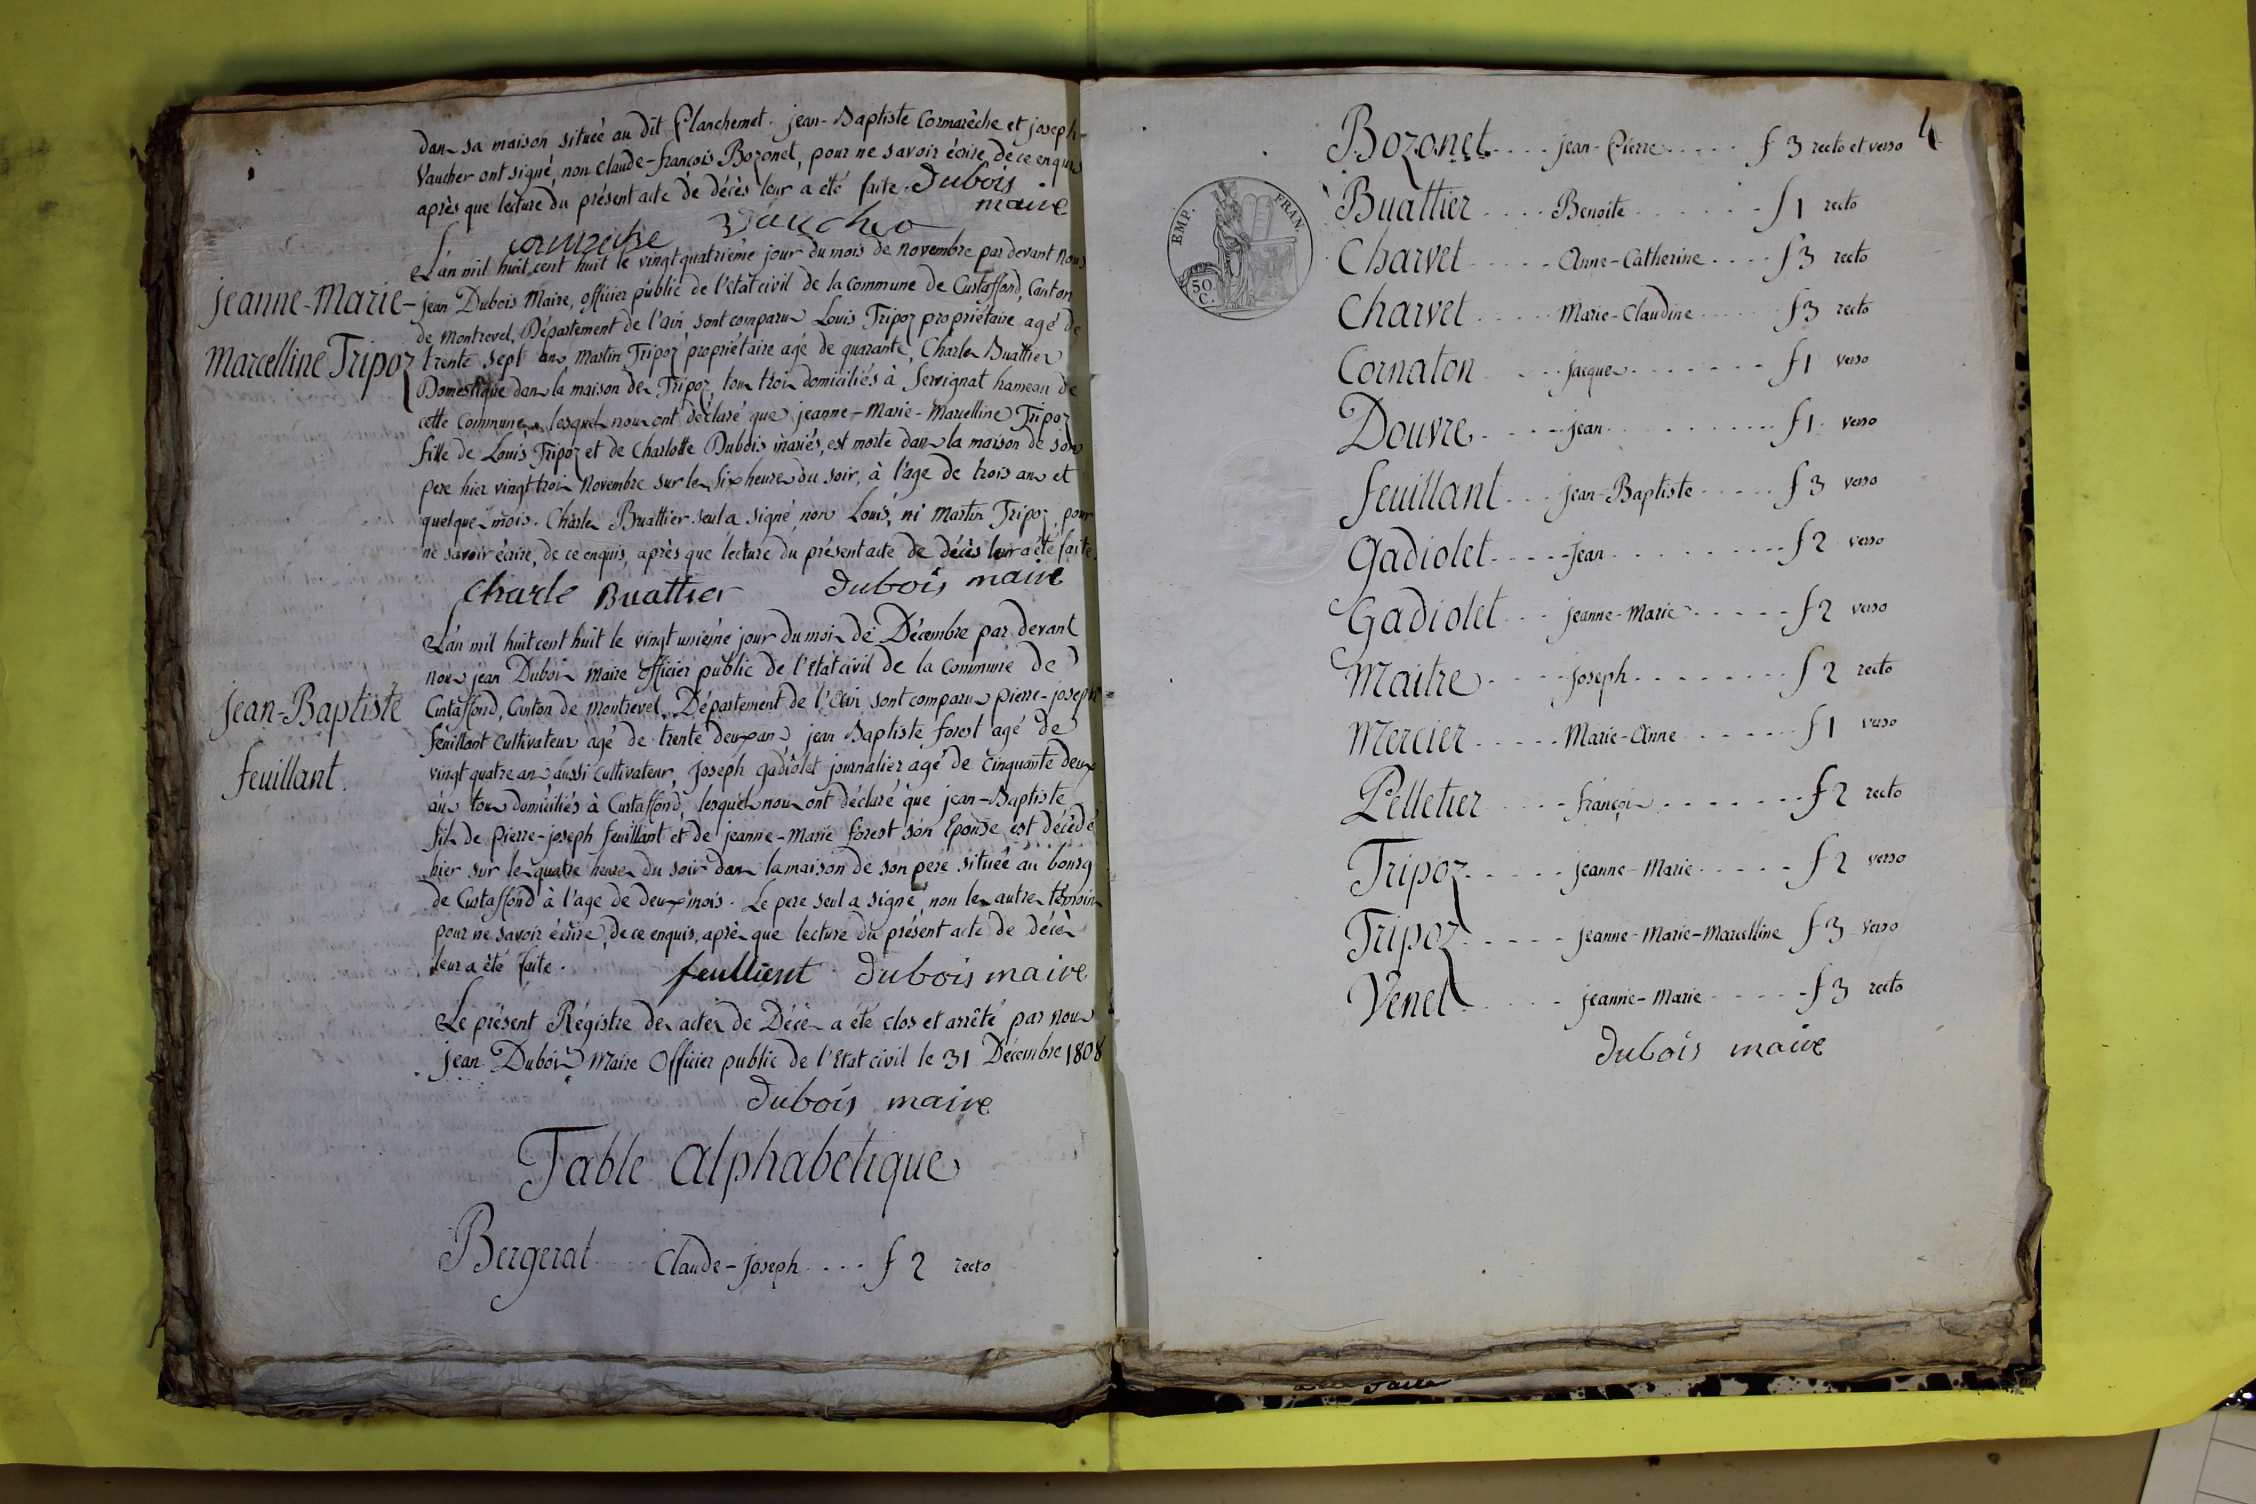 dans sa maison située au dit Planchemet. jean-Baptiste Cormarêche et joseph
Vaucher ont signé, non Claude-françois Bozonet, pour ne savoir écrire, de ce enquis
après que lecture du présent acte de décès leur a été faite. Dubois
maire
cormareche Vaucher
L'an mil huit cent huit le vingt quatrième jour du mois de novembre par devant nous
jeanne-Marie-
jean Dubois Maire, officier public de l'état civil de la commune de Curtaffond, Canton
de Montrevel, Département de l'ain sont comparus Louis Tripoz propriétaire agé de
Marcelline Tripoz
trente sept ans Martin Tripoz propriétaire agé de quarante, Charles Buattier
Domestique dans la maison des Tripoz, tous trois domiciliés à Servignat hameau de
cette Commune, lesquels nous ont déclaré que jeanne-Marie-Marcelline Tripoz
fille de Louis Tripoz et de Charlotte Dubois mariés, est morte dans la maison de son
pere hier vingt trois Novembre sur les six heures du soir, à l'age de trois ans et
quelques mois. Charles Buattier seul a signé, non Louis, ni Martin Tripoz, pour
ne savoir écrire, de ce enquis, après que lecture du présent acte de décès leur a été faite.
Charle Buattier Dubois maire
L'an mil huit cent huit le vingt unième jour du mois de Décembre par devant
nous jean Dubois Maire officier public de l'état civil de la Commune de
jean-Baptiste
Curtaffond, Canton de Montrevel, Département de l'Ain sont comparus pierre-joseph
feuillant Cultivateur agé de trente deux ans jean Baptiste forest agé de
feuillant.
vingt quatre ans aussi Cultivateur, Joseph gadiolet journalier agé de cinquante deux
ans tous domiciliés à Curtaffond, lesquels nous ont déclaré que jean-Baptiste
fils de Pierre-joseph feuillant et de jeanne-Marie forest son Epouse est décédé
hier sur les quatre heures du soir dans la maison de son pere située au bourg
de Curtaffond à l'age de deux mois. Le pere seul a signé, non les autres témoins
pour ne savoir écrire, de ce enquis, après que lecture du présent acte de décès
leur a été faite. feullient Dubois maire
Le présent Régistre des actes de Décès a été clos et arrêté par nous
jean Dubois Maire Officier public de l'Etat civil le 31 Décembre 1808
Dubois maire
Table alphabetique
Bergerat .... Claude-Joseph .... f 2 recto
4
EMP. FRAN.
50 C.
Bozonet .... jean-Pierre ..... f 3 recto et verso
Buattier .... Benoite ...... f 1 recto
Charvet ..... Anne-Catherine .... f 3 recto
Charvet ..... Marie-Claudine ..... f 3 recto
Cornaton ... jacques ....... f 1 verso
Douvre ..... jean ......... f 1 verso
feuillant ... jean-Baptiste ..... f 3 verso
Gadiolet ..... jean ......... f 2 verso
Gadiolet ... jeanne-Marie ..... f 2 verso
Maitre ..... joseph ........ f 2 recto
Mercier ..... Marie-Anne ...... f 1 verso
Pelletier .... françois ....... f 2 recto
Tripoz ..... jeanne-Marie ..... f 2 verso
Tripoz ..... jeanne-Marie-Marcelline f 3 verso
Venet .... jeanne-Marie ..... f 3 recto
Dubois maire